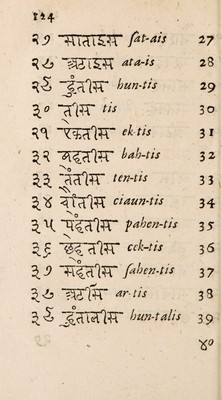 124
२७ साताइस sat-ais 27
२८ अठाइस ata-is 28
२९ हुंतीस hun-tis 29
३० तीस tis 30
३१ ऐकतीस ek-tis 31
३२ बहतीस bah-tis 32
३३ तैंतीस ten-tis 33
३४ चौंतीस ciaun-tis 34
३५ पेहंतीस pahen-tis 35
३६ छहतीस cek-tis 36
३७ सहंतीस sahen-tis 37
३८ अठतीस ar-tis 38
३९ हुंतालीस hun-talis 39
४०